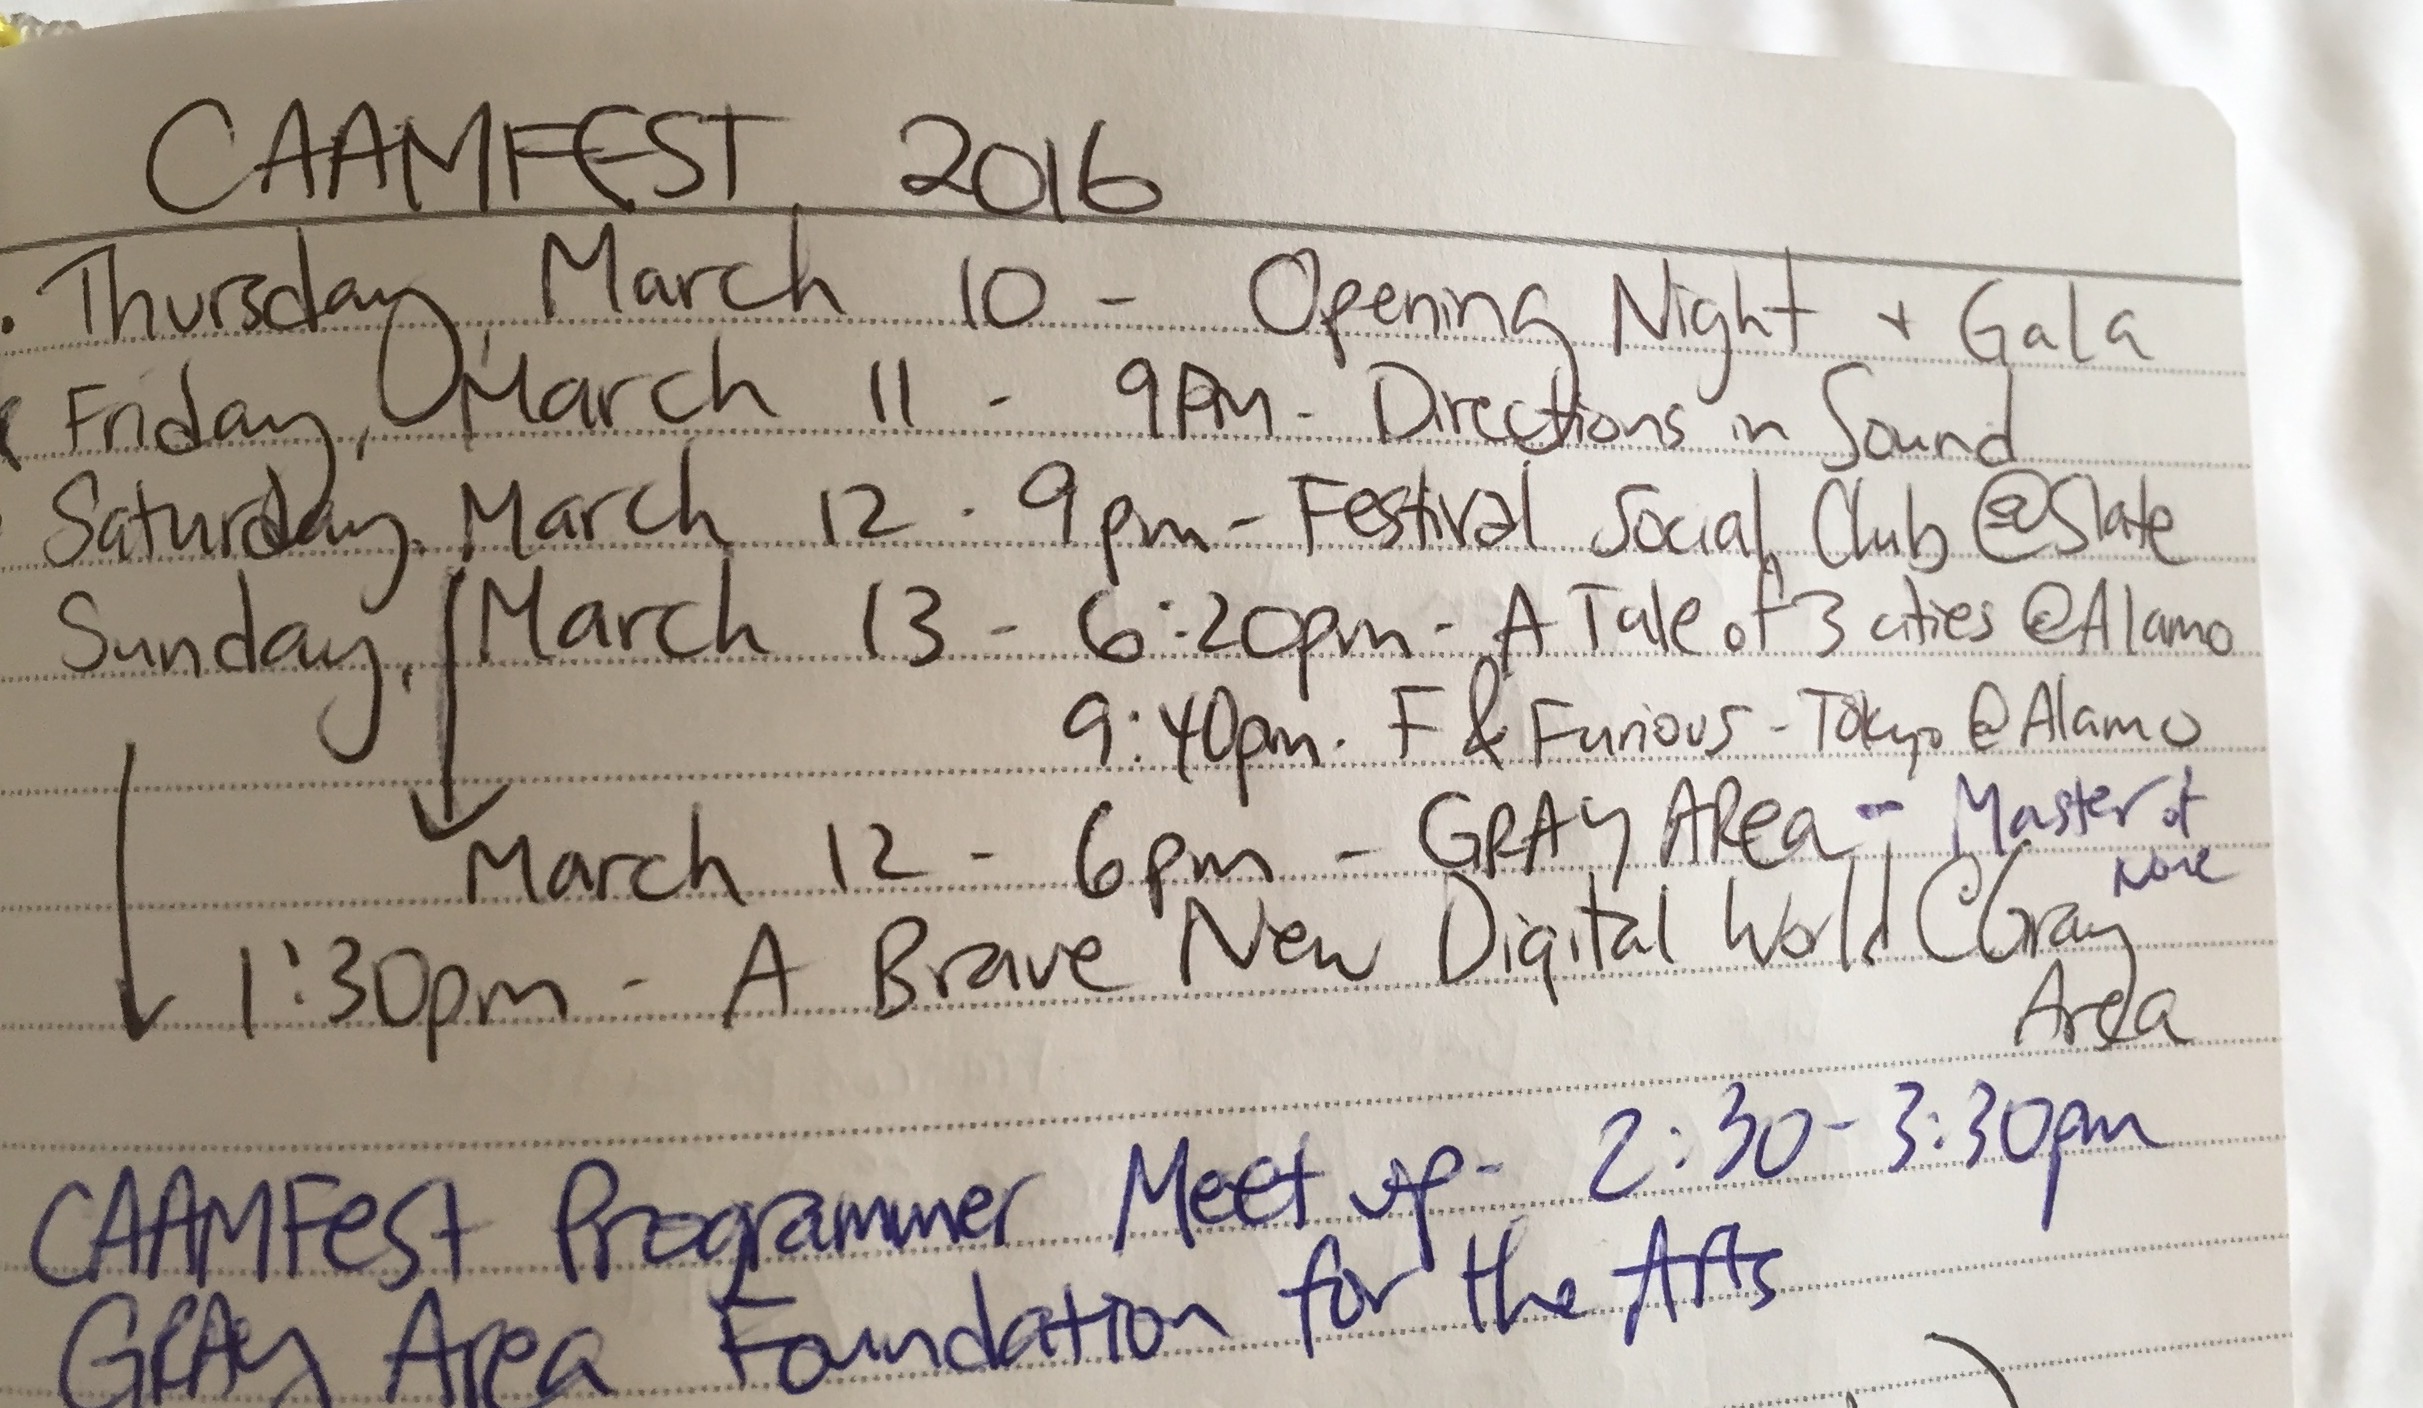 CAAMFEST 2016
Thursday, March 10 - Opening Night + Gala
Friday, March 11 - 9PM - Directions in Sound
Saturday, March 12 - 9pm - Festival Social Club @ Slate
Sunday, March 13 - 6:20pm - A Tale of 3 cities @ Alamo
9:40pm - F & Furious - Tokyo @ Alamo
March 12 - 6pm - GRAY AREA - Master of
None
1:30pm - A Brave New Digital World (Gray
Area
CAAMFest Programmer Meet up - 2:30 - 3:30pm
GRAY Area Foundation for the Arts